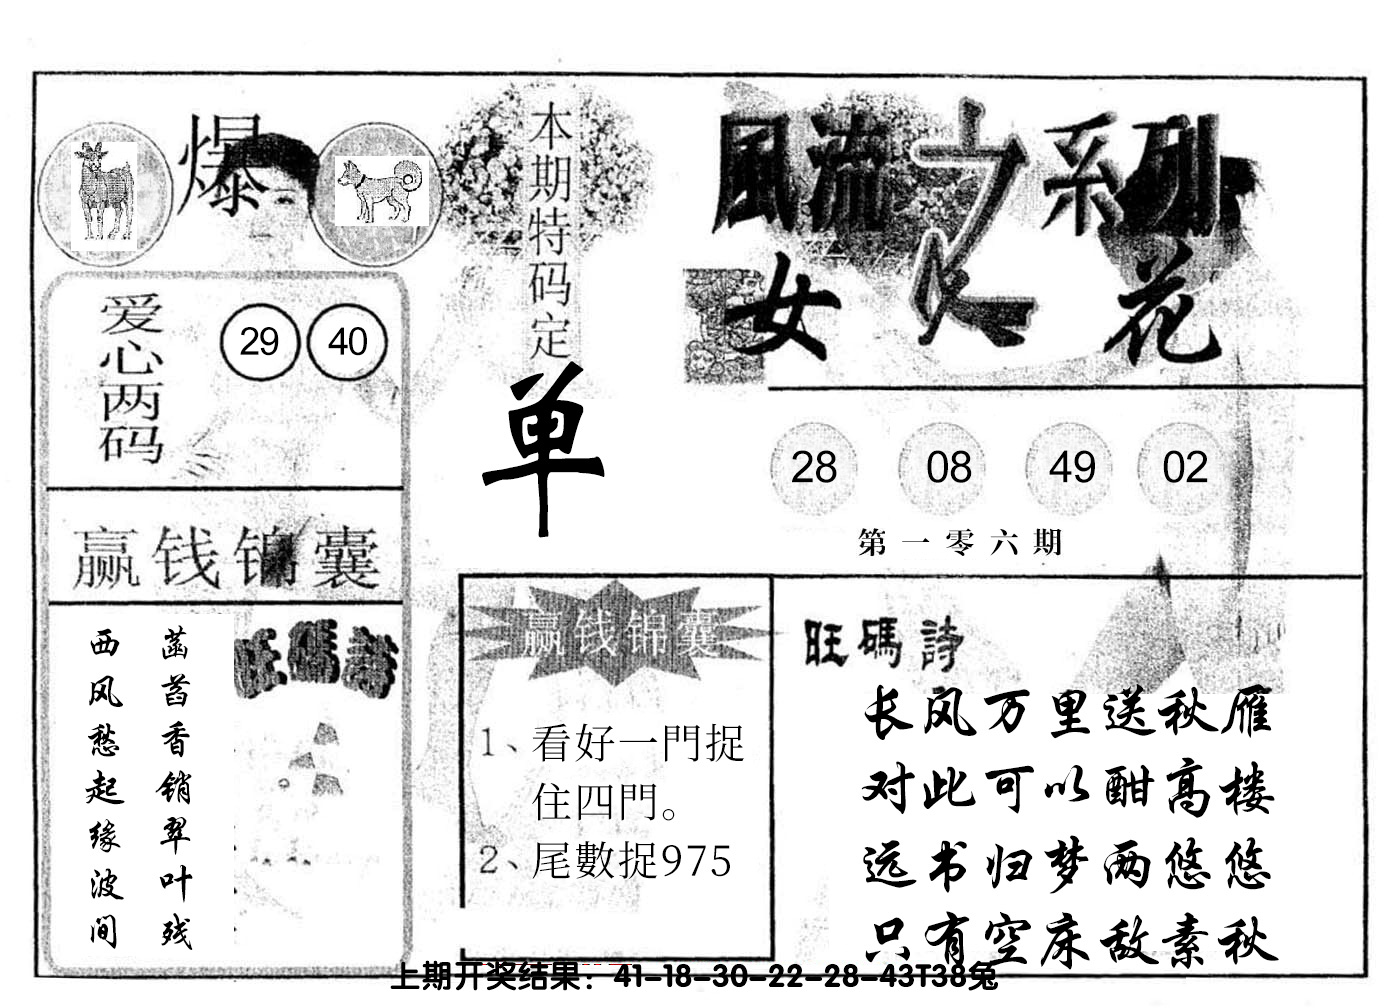 爆
本期特码定
单
風流之系列
女人花
爱心两码
29 40
28 08 49 02
第一零六期
赢钱锦囊
旺碼詩
菡萏香销翠叶残
西风愁起缘波间
赢钱锦囊
1、看好一門捉
住四門。
2、尾數捉975
旺碼詩
长风万里送秋雁
对此可以酣高楼
远书归梦两悠悠
只有空床敌素秋
上期开奖结果：41-18-30-22-28-43T38兔